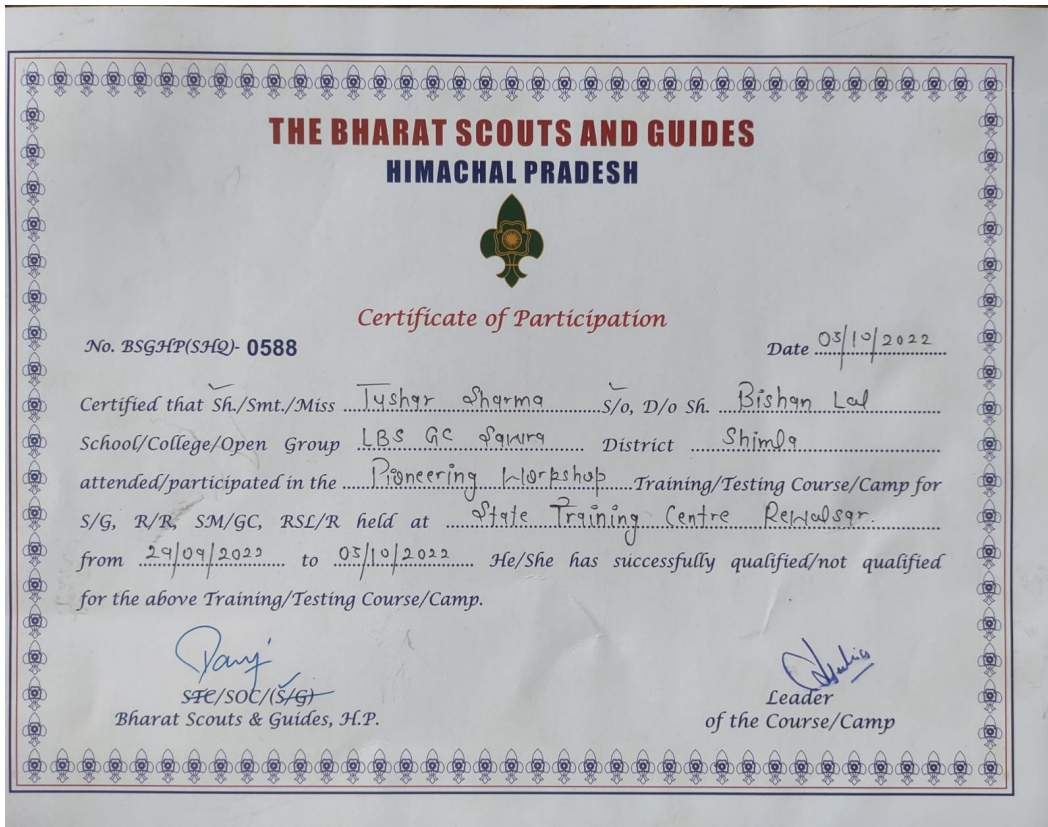 THE BHARAT SCOUTS AND GUIDES
HIMACHAL PRADESH
Certificate of Participation
No. BSGHP(SHQ)- 0588
Date 03/10/2022
Certified that Sh./Smt./Miss Tushar Sharma S/o, D/o Sh. Bishan Lal
School/College/Open Group LBS GC District Shimla
attended/participated in the Pioneering Workshop Training/Testing Course/Camp for
S/G, R/R, SM/GC, RSL/R held at State Training Centre Rewalsar.
from 29/09/2022 to 03/10/2022 He/She has successfully qualified/not qualified
for the above Training/Testing Course/Camp.
STC/SOC/(S/G)
Bharat Scouts & Guides, H.P.
Leader
of the Course/Camp